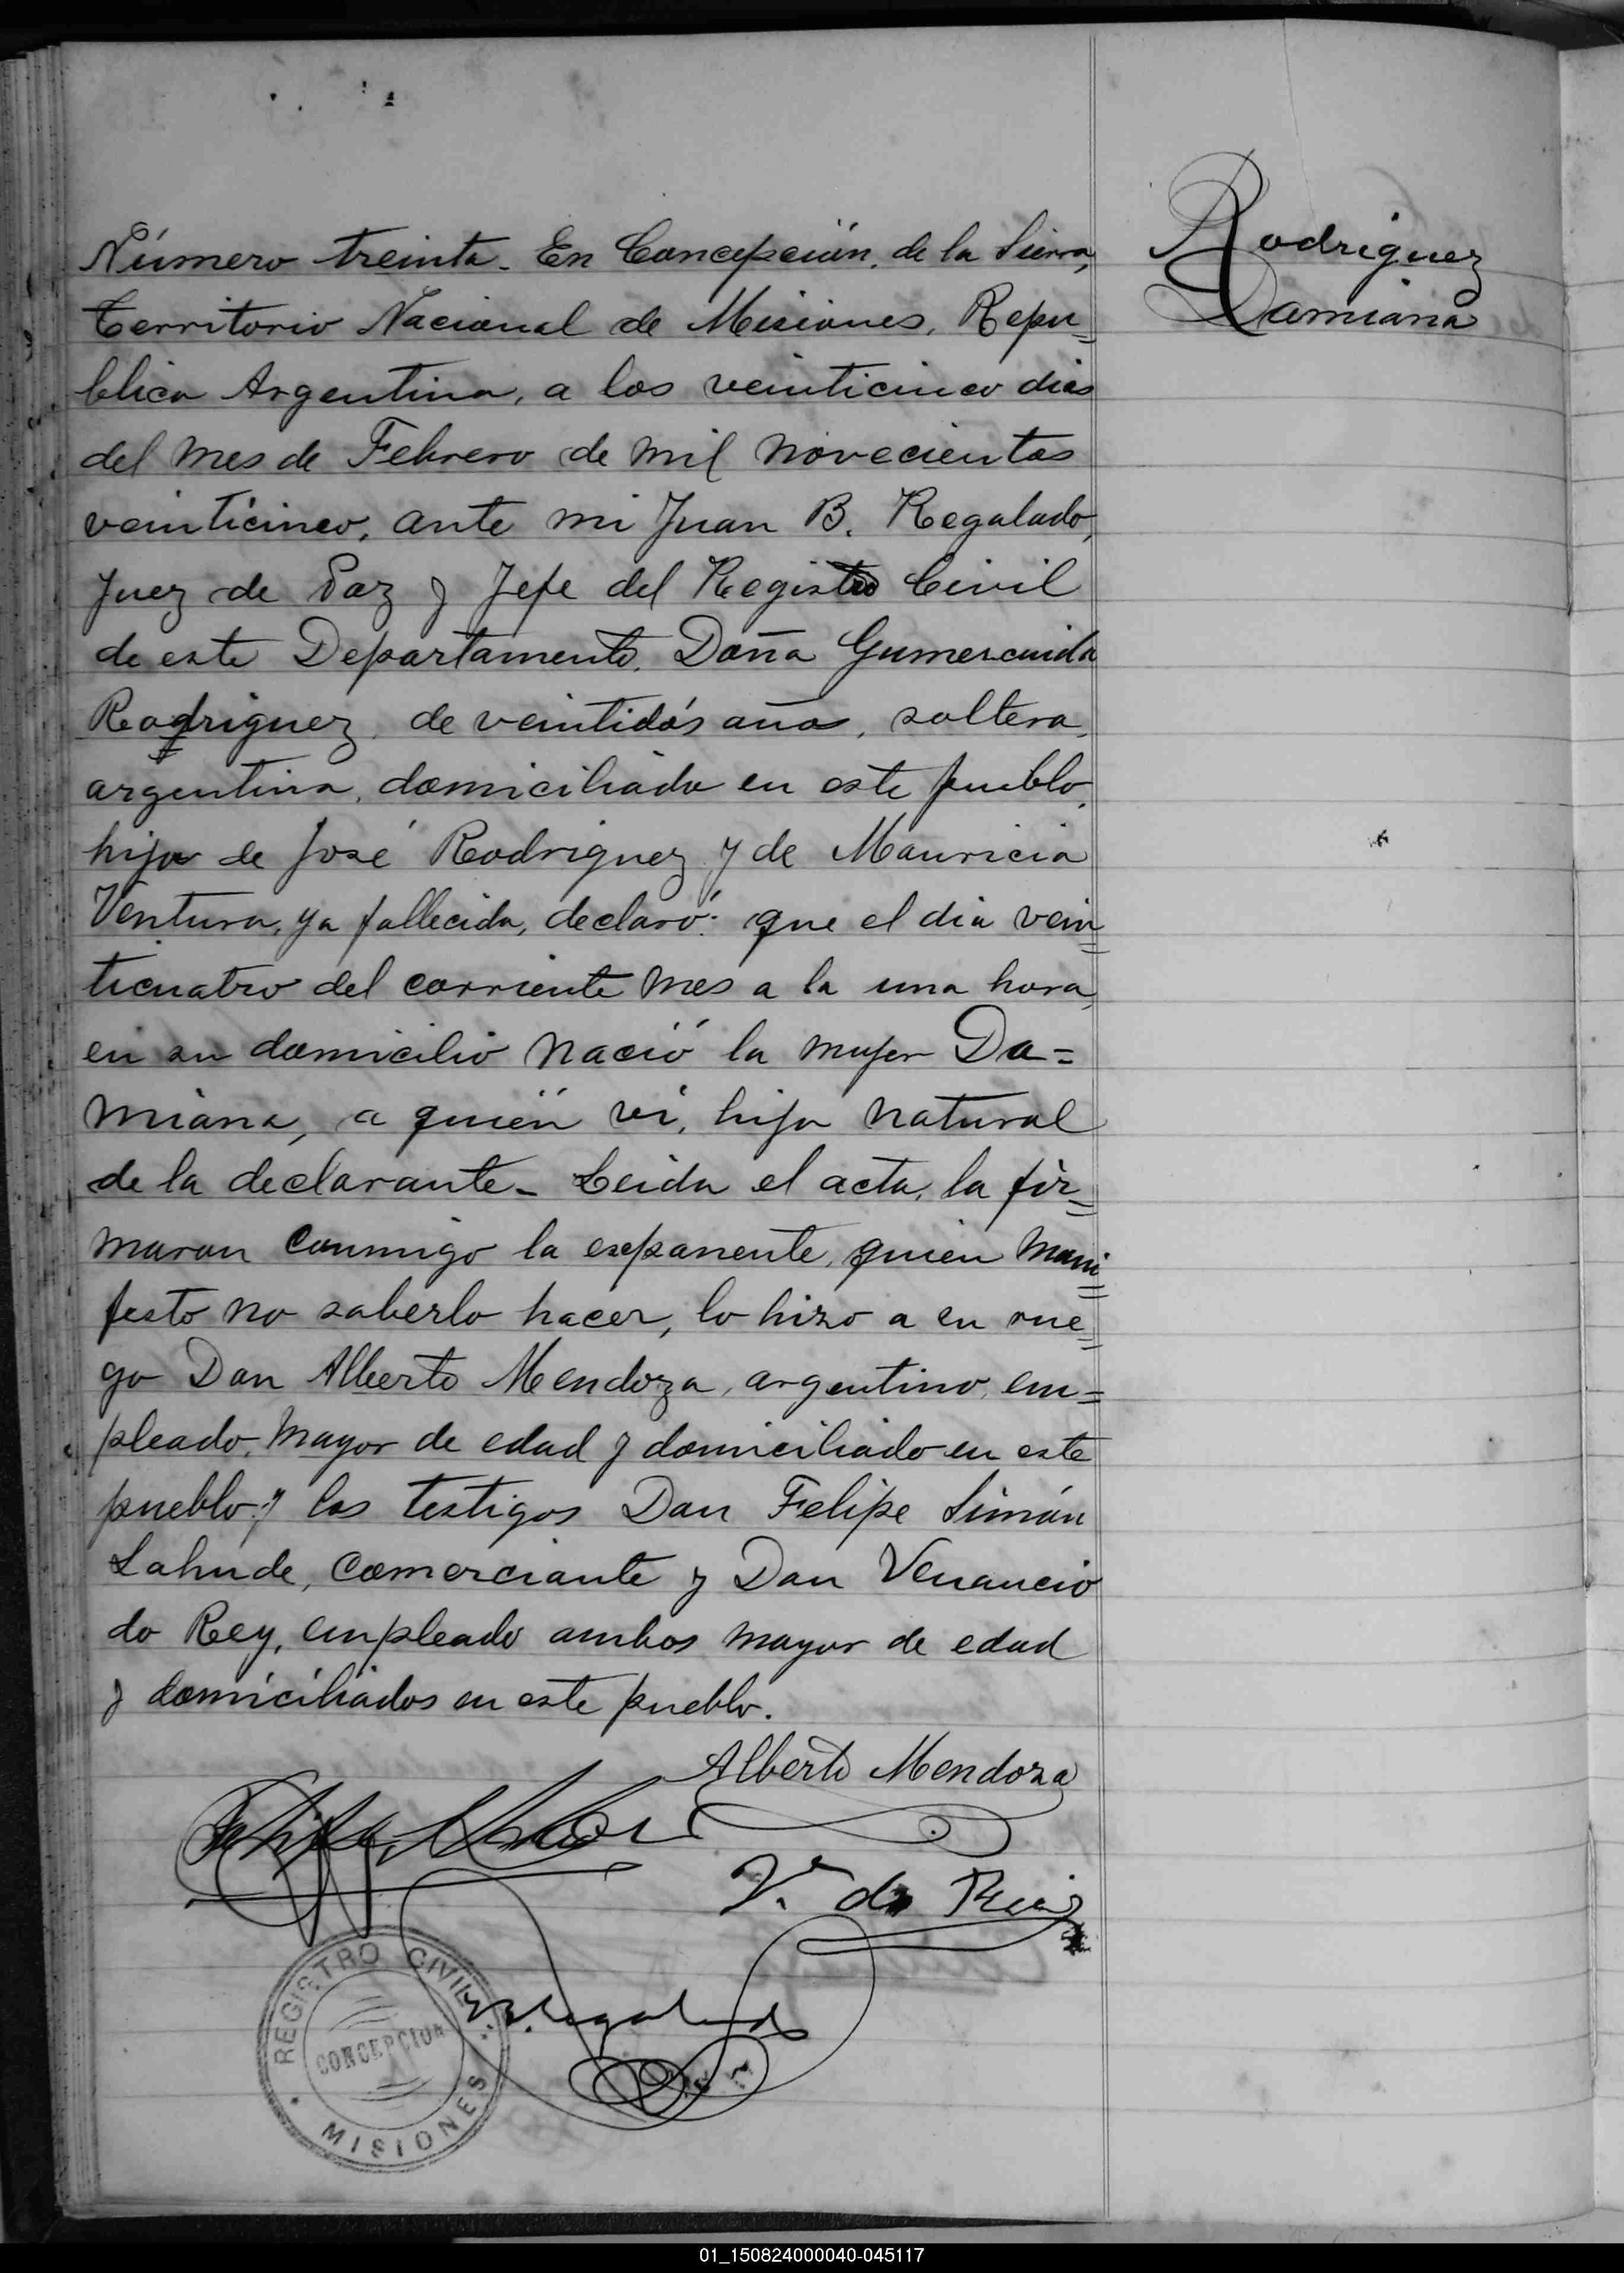 Rodriguez
Damiana
Número treinta. En Concepción, de la Sierra,
Territorio Nacional de Misiones, Repu=
blica Argentina, a los veinticinco dias
del mes de Febrero de mil novecientos
veinticinco, ante mi Juan B. Regalado,
Juez de Paz y Jefe del Registro Civil
de este Departamento, Doña Gumercinda
Rodriguez, de veintidós años, soltera,
argentina, domiciliada en este pueblo,
hija de José Rodriguez y de Mauricia
Ventura, ya fallecida, declaró: que el dia vein=
ticuatro del corriente mes a la una hora,
en su domicilio nació la mujer Da=
miana, a quién vi, hija natural
de la declarante. Leida el acta, la fir=
maron conmigo la exponente, quien mani=
festo no saberlo hacer, lo hizo a su rue=
go Don Alberto Mendoza, argentino, em=
pleado, mayor de edad y domiciliado en este
pueblo y los testigos Don Felipe Simón
Lahude, comerciante y Don Venancio
do Rey, empleado ambos mayor de edad
y domiciliados en este pueblo.
Alberto Mendoza
V. do Rei
REGISTRO CIVIL
CONCEPCION
MISIONES
01_150824000040-045117